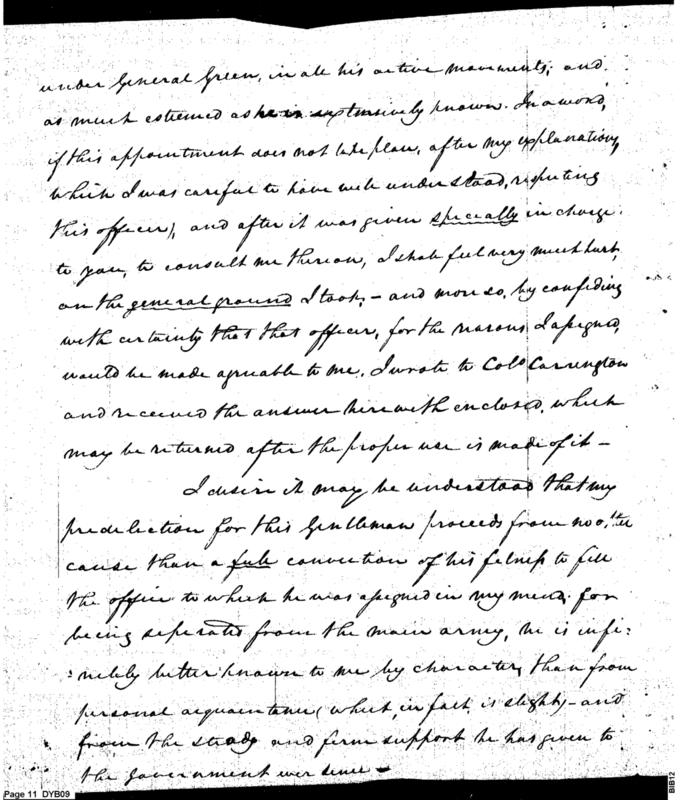 under General Green, in all his active movements; and
as much esteemed as he is extensively known. In a word,
if this appointment does not take place, after my explanations,
which I was careful to have well understood, respecting
this officer), and after it was given specially in charge
to you, to consult me thereon, I shall feel very much hurt,
on the general ground I took,—and more so, by confiding
with certainty that that officer, for the reasons I assigned,
would be made agreeable to me. I wrote to Colo Carrington
and received the answer herewith enclosed, which
may be returned after the proper use is made of it—
I desire it may be understood that my
predilection for this Gentleman proceeds from no other
cause than a full conviction of his fitness to fill
the office to which he was assigned in my mind; for
being seperated from the main army, he is infi:
:nitely better known to me by character, than from
personal acquaintance (which, in fact, is slight)—and
from the steady and firm support he has given to
the Government ever since—
Page 11 DYB09
BIB12